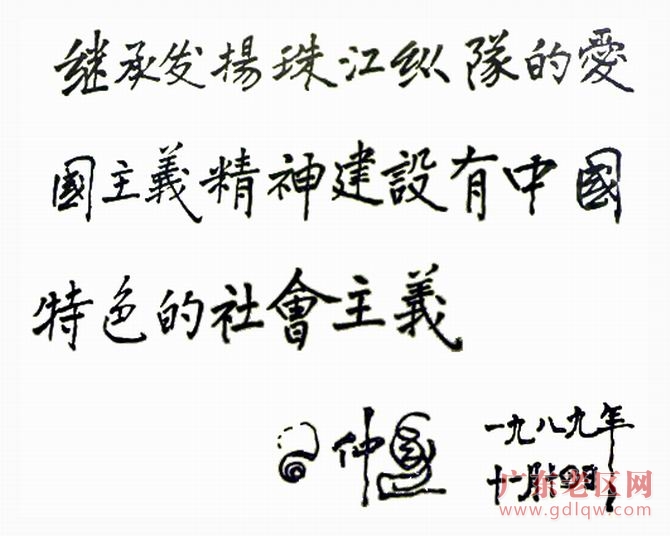 继承发揚珠江纵隊的愛
國主義精神建設有中國
特色的社會主義
仲
一九八九年
十月
广东老区网
www.gdlqw.com